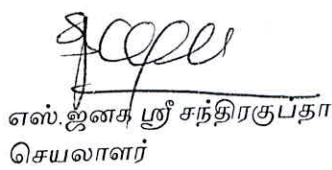 எஸ்.ஜனக ஸ்ரீ சந்திரகுப்தா
செயலாளர்